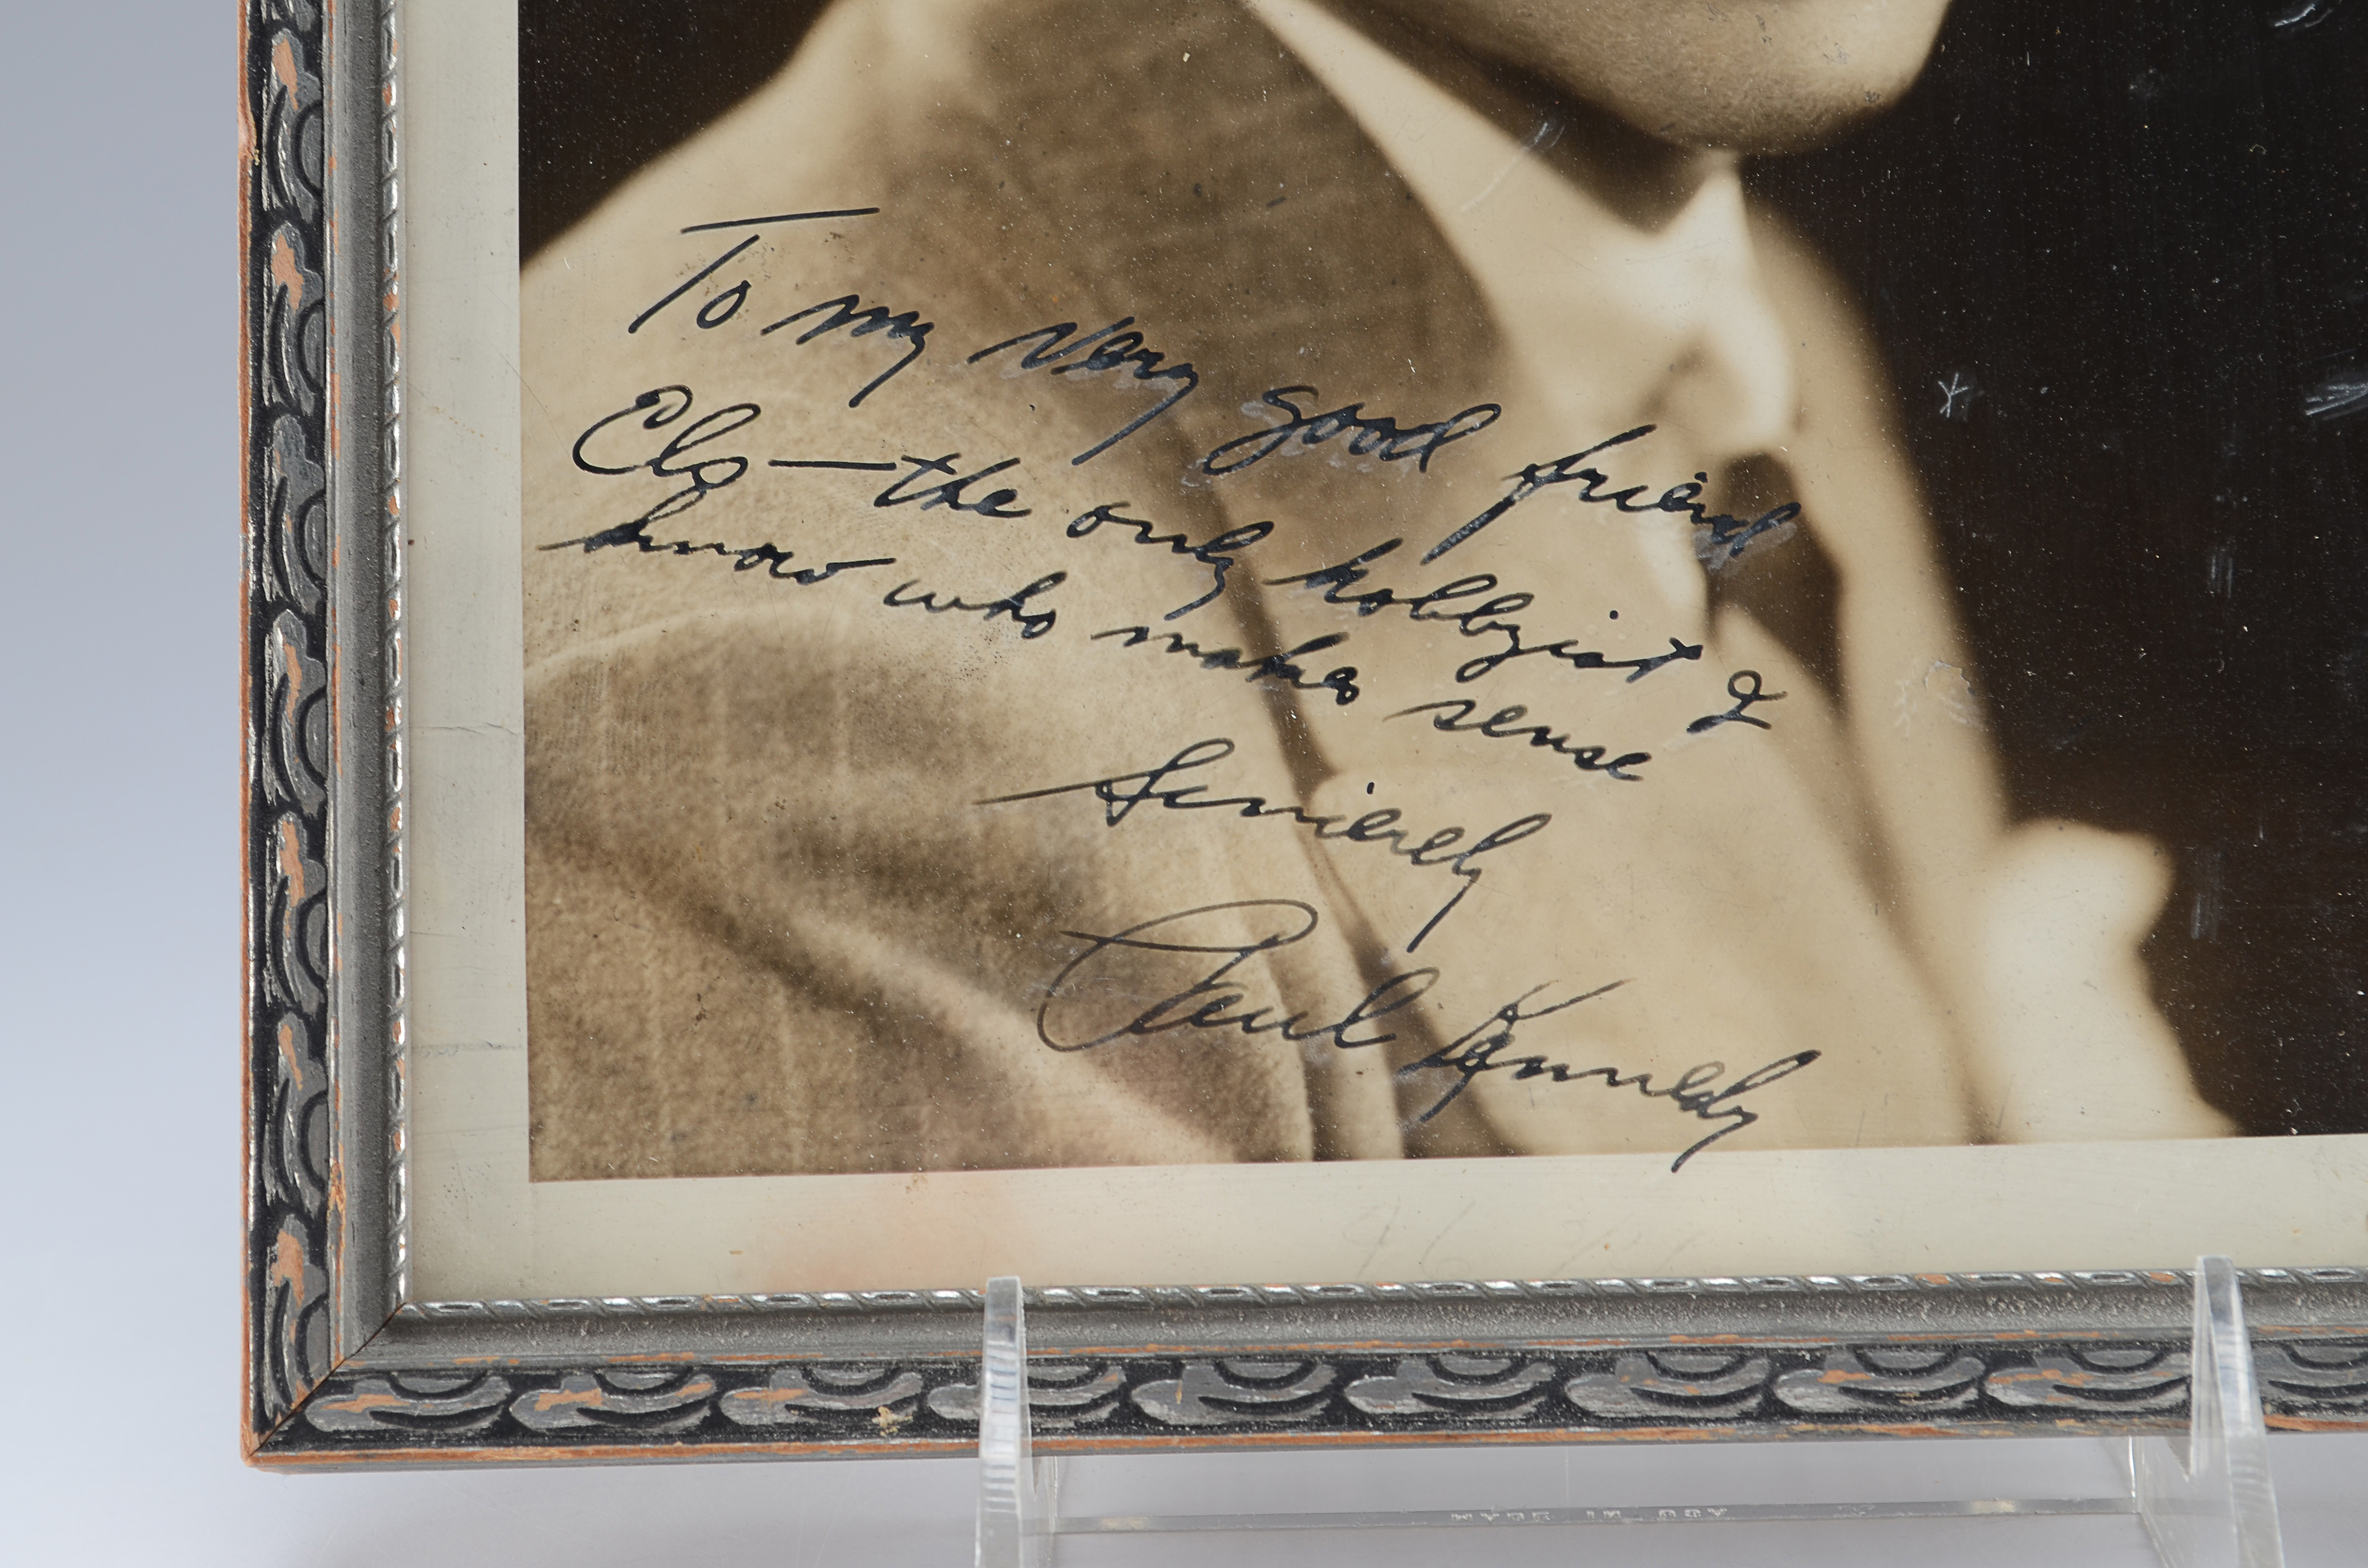 To my very good friend
Elg — the only hobbyist I
know who makes sense
Sincerely
Paul Kennedy
MADE IN USA